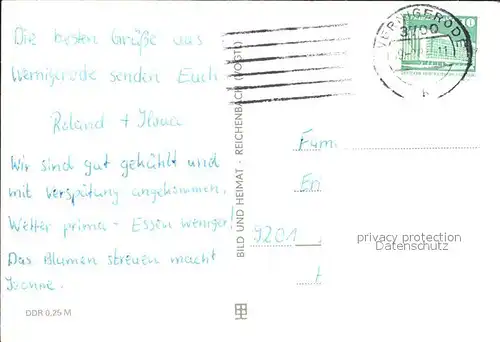 Die besten Grüße aus
Wernigerode senden Euch
Roland + Ilona
Wir sind gut gekühlt und
mit Verspätung angekommen.
Wetter prima - Essen weniger!
Das Blumen streuen macht
DDR 0,25 M
BILD UND HEIMAT · REICHENBACH (VOGTL)
WERNIGERODE
3700
Fam
9201
privacy protection
Datenschutz